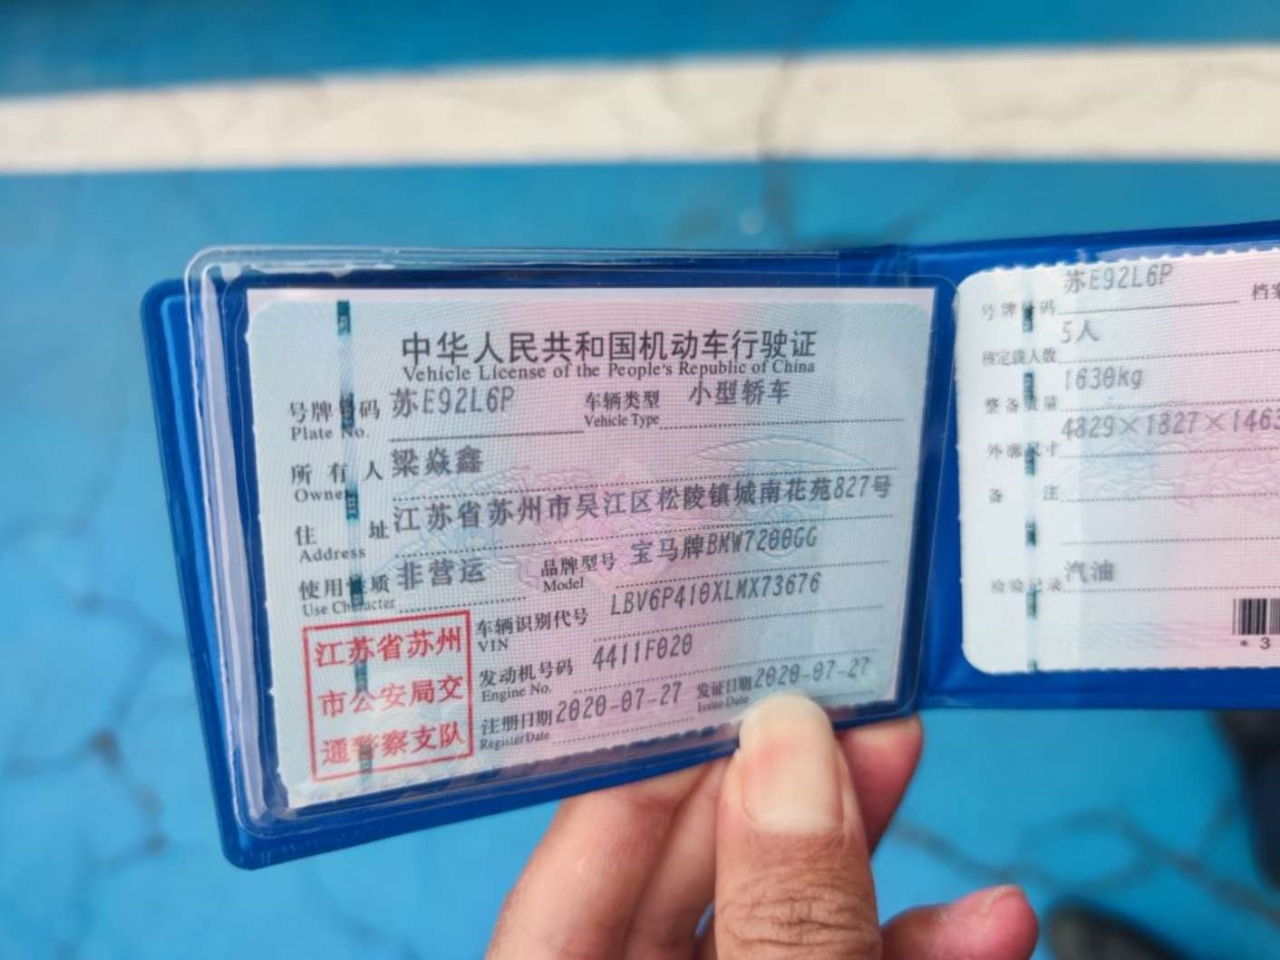 中华人民共和国机动车行驶证
Vehicle License of the People's Republic of China
号牌号码 苏E92L6P 车辆类型 小型轿车
Plate No. Vehicle Type
所有人 梁焱鑫
Owner
住址 江苏省苏州市吴江区松陵镇城南花苑827号
Address
使用性质 非营运 品牌型号 宝马牌BMW7200GG
Use Character Model
江苏省苏州
市公安局交
通警察支队
车辆识别代号 LBV6P410XLMX73676
VIN
发动机号码 4411F020
Engine No.
注册日期 2020-07-27 发证日期 2020-07-27
Register Date Issue Date
号牌号码 苏E92L6P 档案
核定载人数 5人
整备质量 1630kg
外廓尺寸 4829×1827×1463
备注
检验记录 汽油
*3